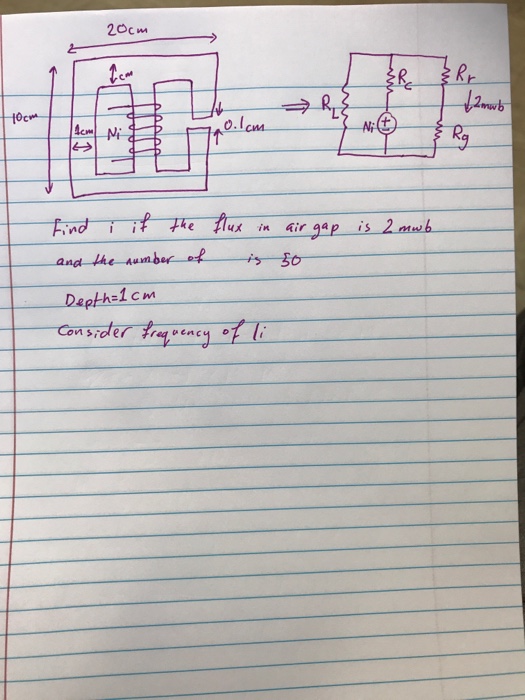 20cm
1cm
10cm
1cm Ni
0.1cm
⇒
R_L
R_c
R_r
2mwb
Ni
R_g
Find i if the flux in air gap is 2 mwb
and the number of is 50
Depth=1cm
Consider frequency of li